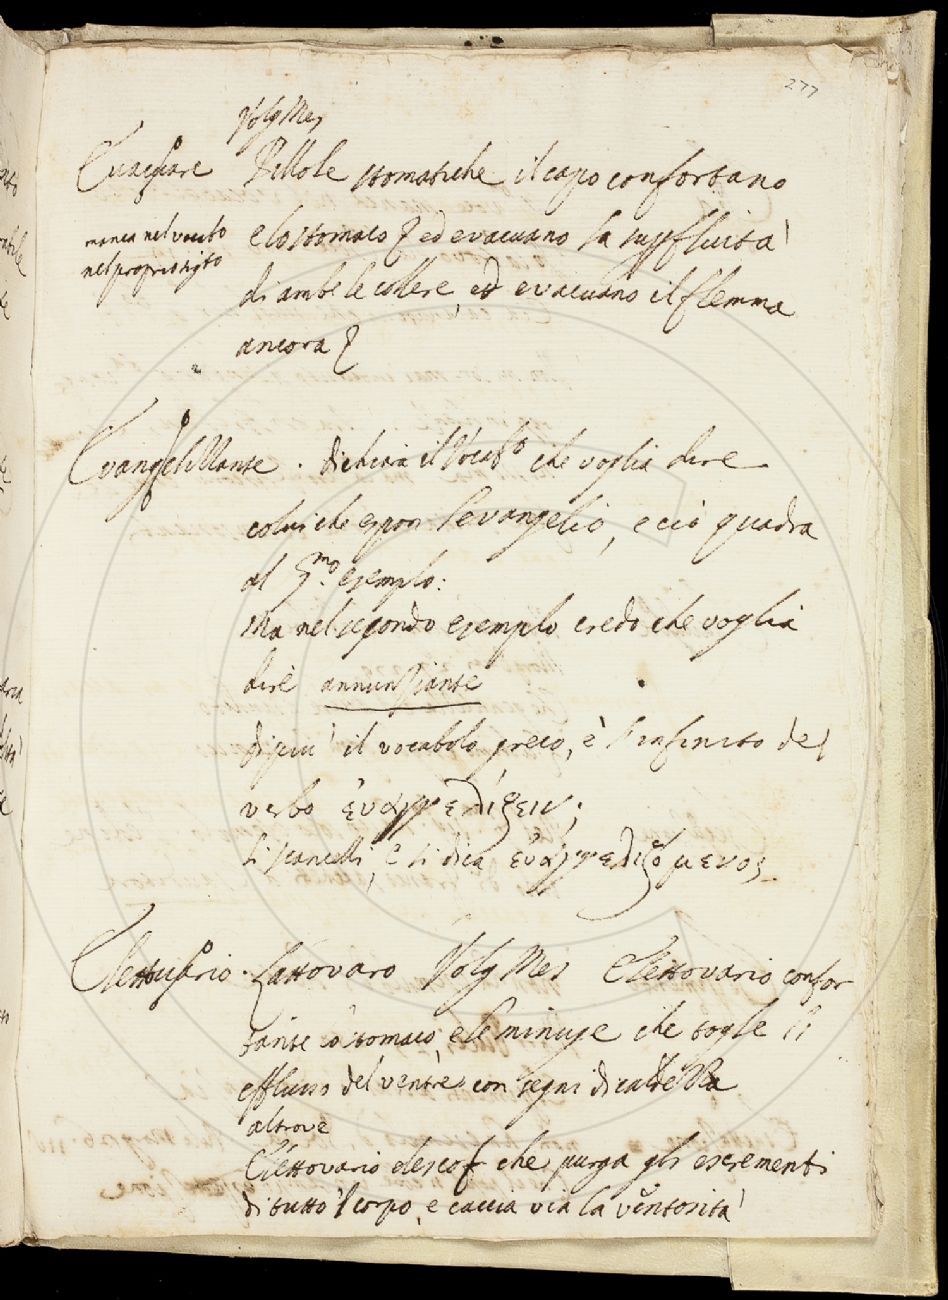 277
Volg Mes
Evacuare Pillole stomatiche il capo confortano
manca nel vocab.o e lo stomaco ed evacuano la supfluita'
nel proprio sig.to di ambe le collere, ed evacuano il flemma
ancora
Evangelizzante. dichiara il Vocab.o che voglia dire
colui che espon l'evangelio, e ciò quadra
al p.mo esempio:
Ma nel secondo esempio credo che voglia
dire annunziante
di piu' il vocabolo greco, è l'infinito del
verbo ἐυαγγελίζειν;
si scancelli, e si dica ἐυαγγελιζόμενος
Elettuario. Lattovaro Volg Mes Elettovario confor
tante lo stomaco, e le minuge che togle li
efflusso del ventre con segni di caldezza
altrove
Elettovario elescof che purga gli escrementi
di tutto 'l corpo, e caccia via la ventosita'